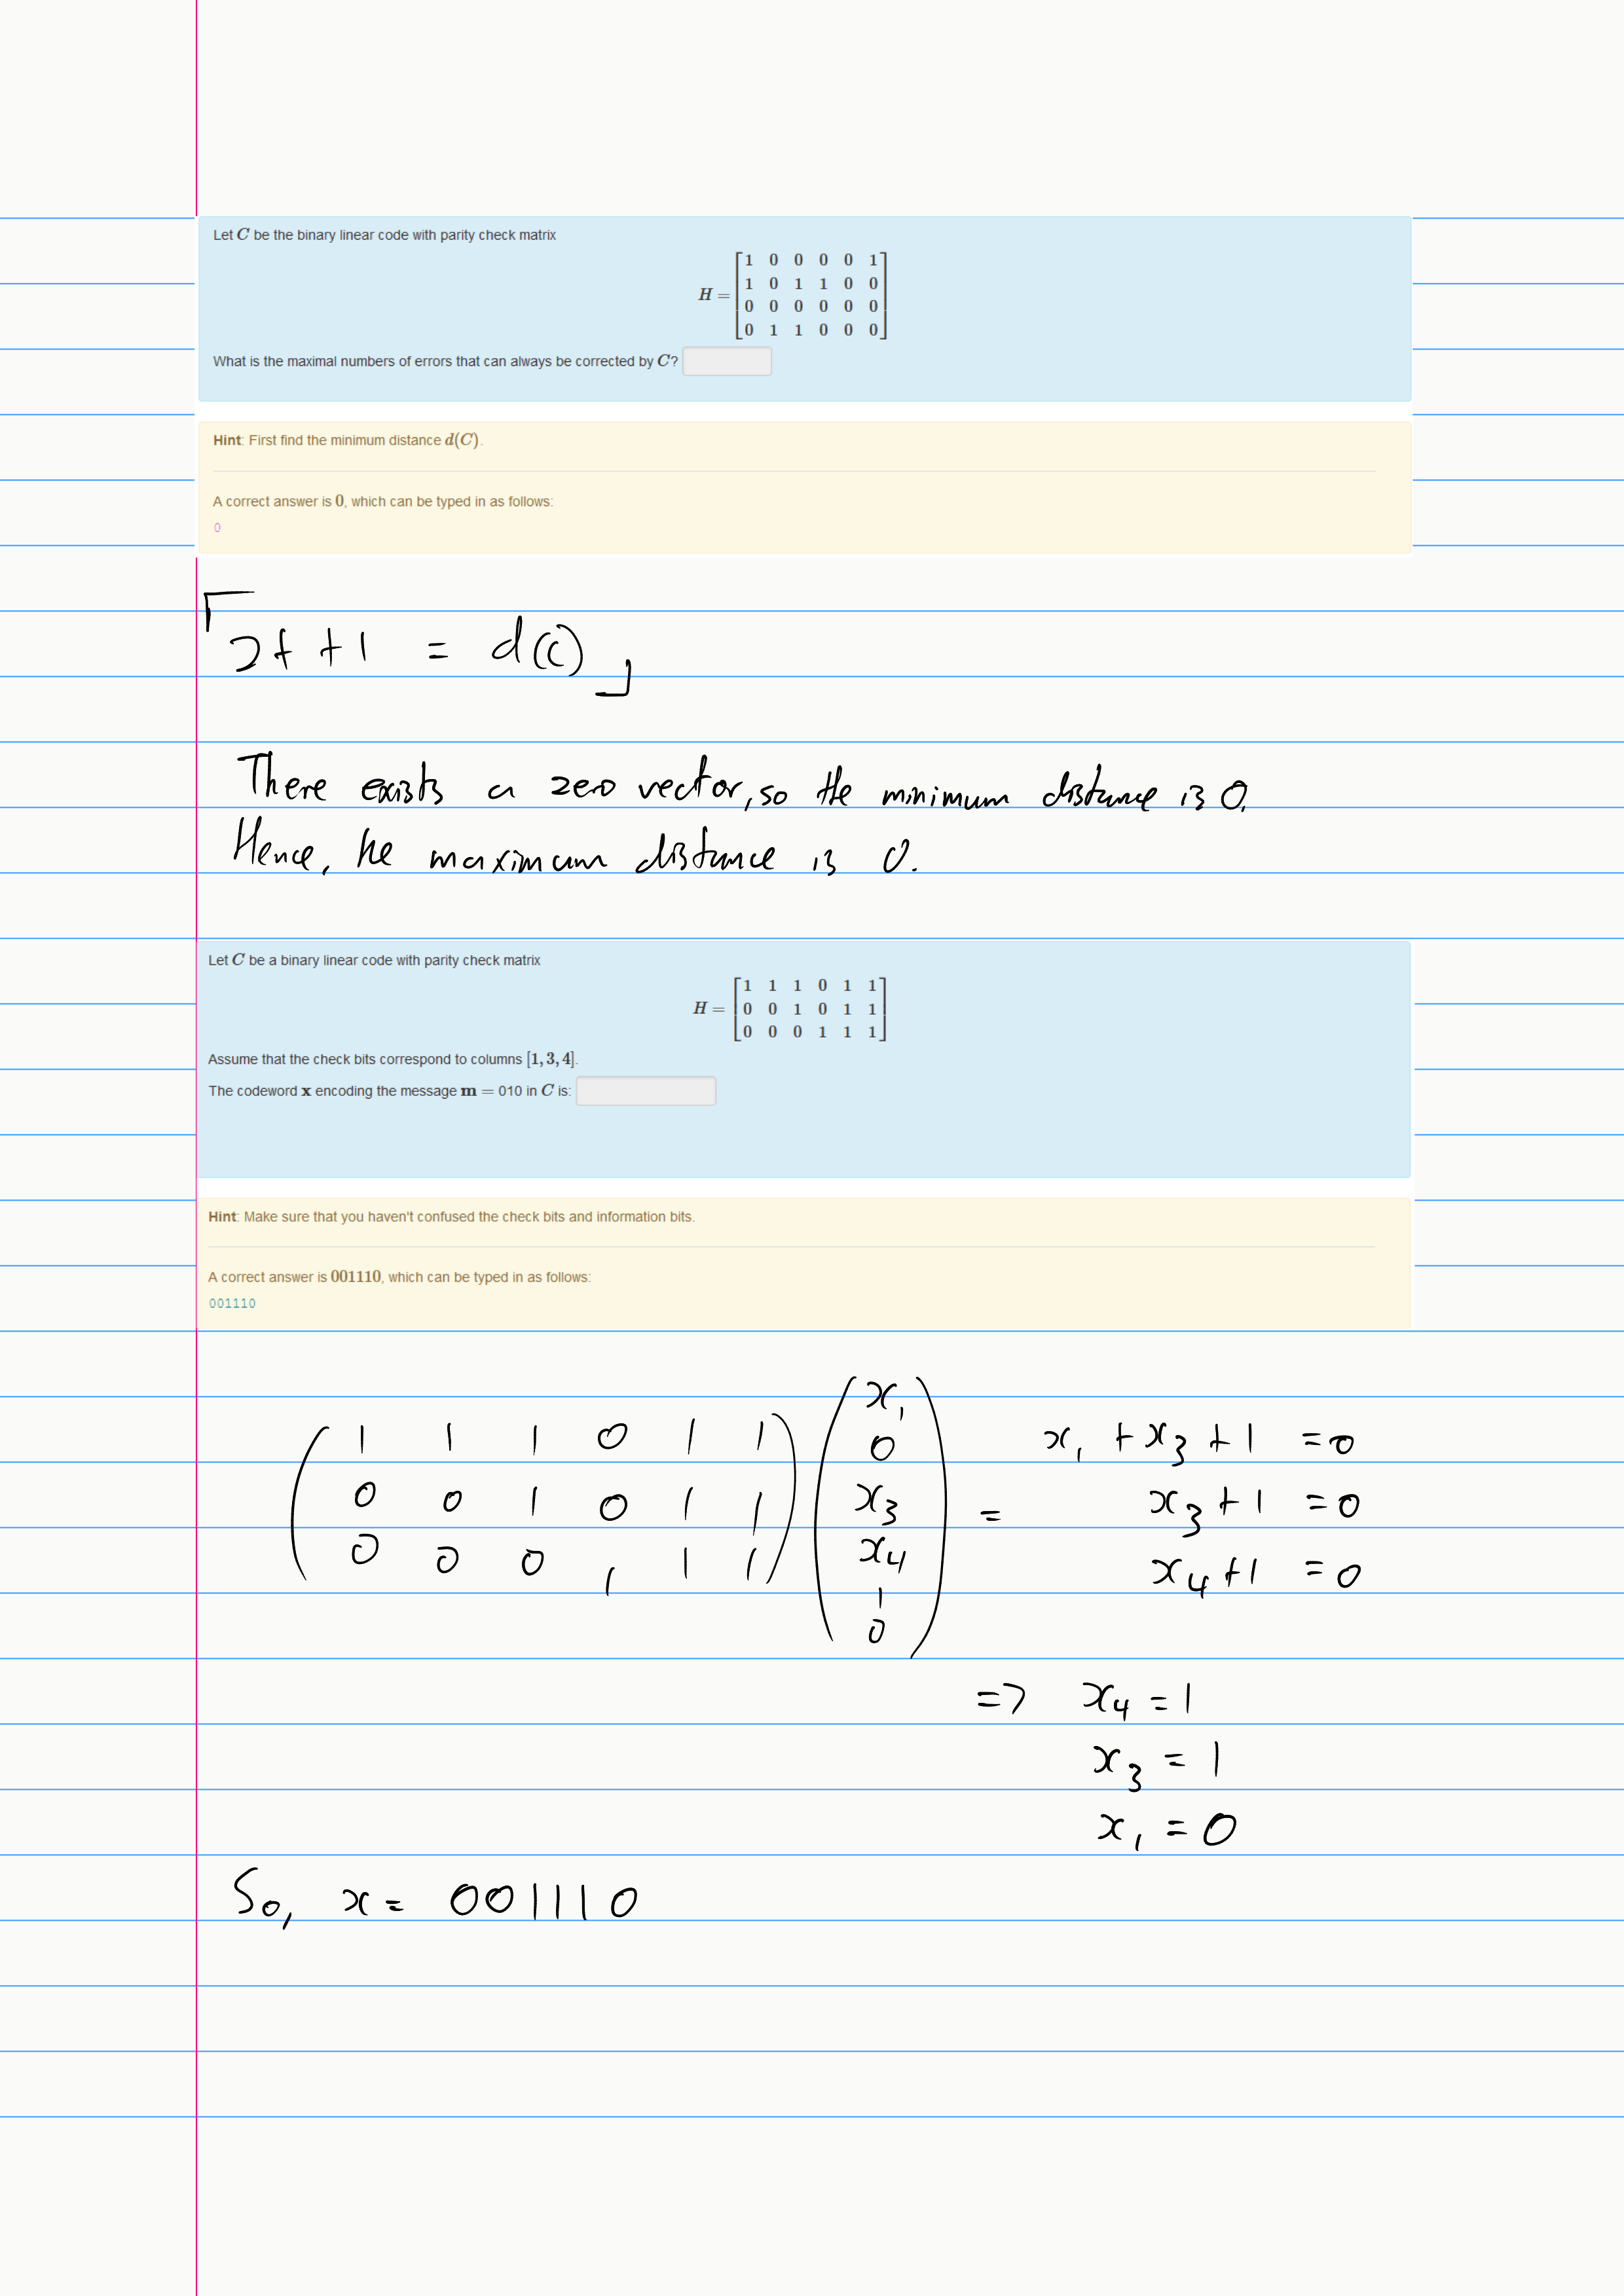 Let C be the binary linear code with parity check matrix
H = [1 0 0 0 0 1
1 0 1 1 0 0
0 0 0 0 0 0
0 1 1 0 0 0]
What is the maximal numbers of errors that can always be corrected by C?
Hint: First find the minimum distance d(C).
A correct answer is 0, which can be typed in as follows:
0
2t + 1 = d(C)
There exists a zero vector, so the minimum distance is 0.
Hence, he maximum distance is 0.
Let C be a binary linear code with parity check matrix
H = [1 1 1 0 1 1
0 0 1 0 1 1
0 0 0 1 1 1]
Assume that the check bits correspond to columns [1, 3, 4].
The codeword x encoding the message m = 010 in C is:
Hint: Make sure that you haven't confused the check bits and information bits.
A correct answer is 001110, which can be typed in as follows:
001110
(1 1 1 0 1 1
0 0 1 0 1 1
0 0 0 1 1 1)
(x₁
0
x₃
x₄
1
0)
= x₁ + x₃ + 1 = 0
x₃ + 1 = 0
x₄ + 1 = 0
=> x₄ = 1
x₃ = 1
x₁ = 0
So, x = 001110